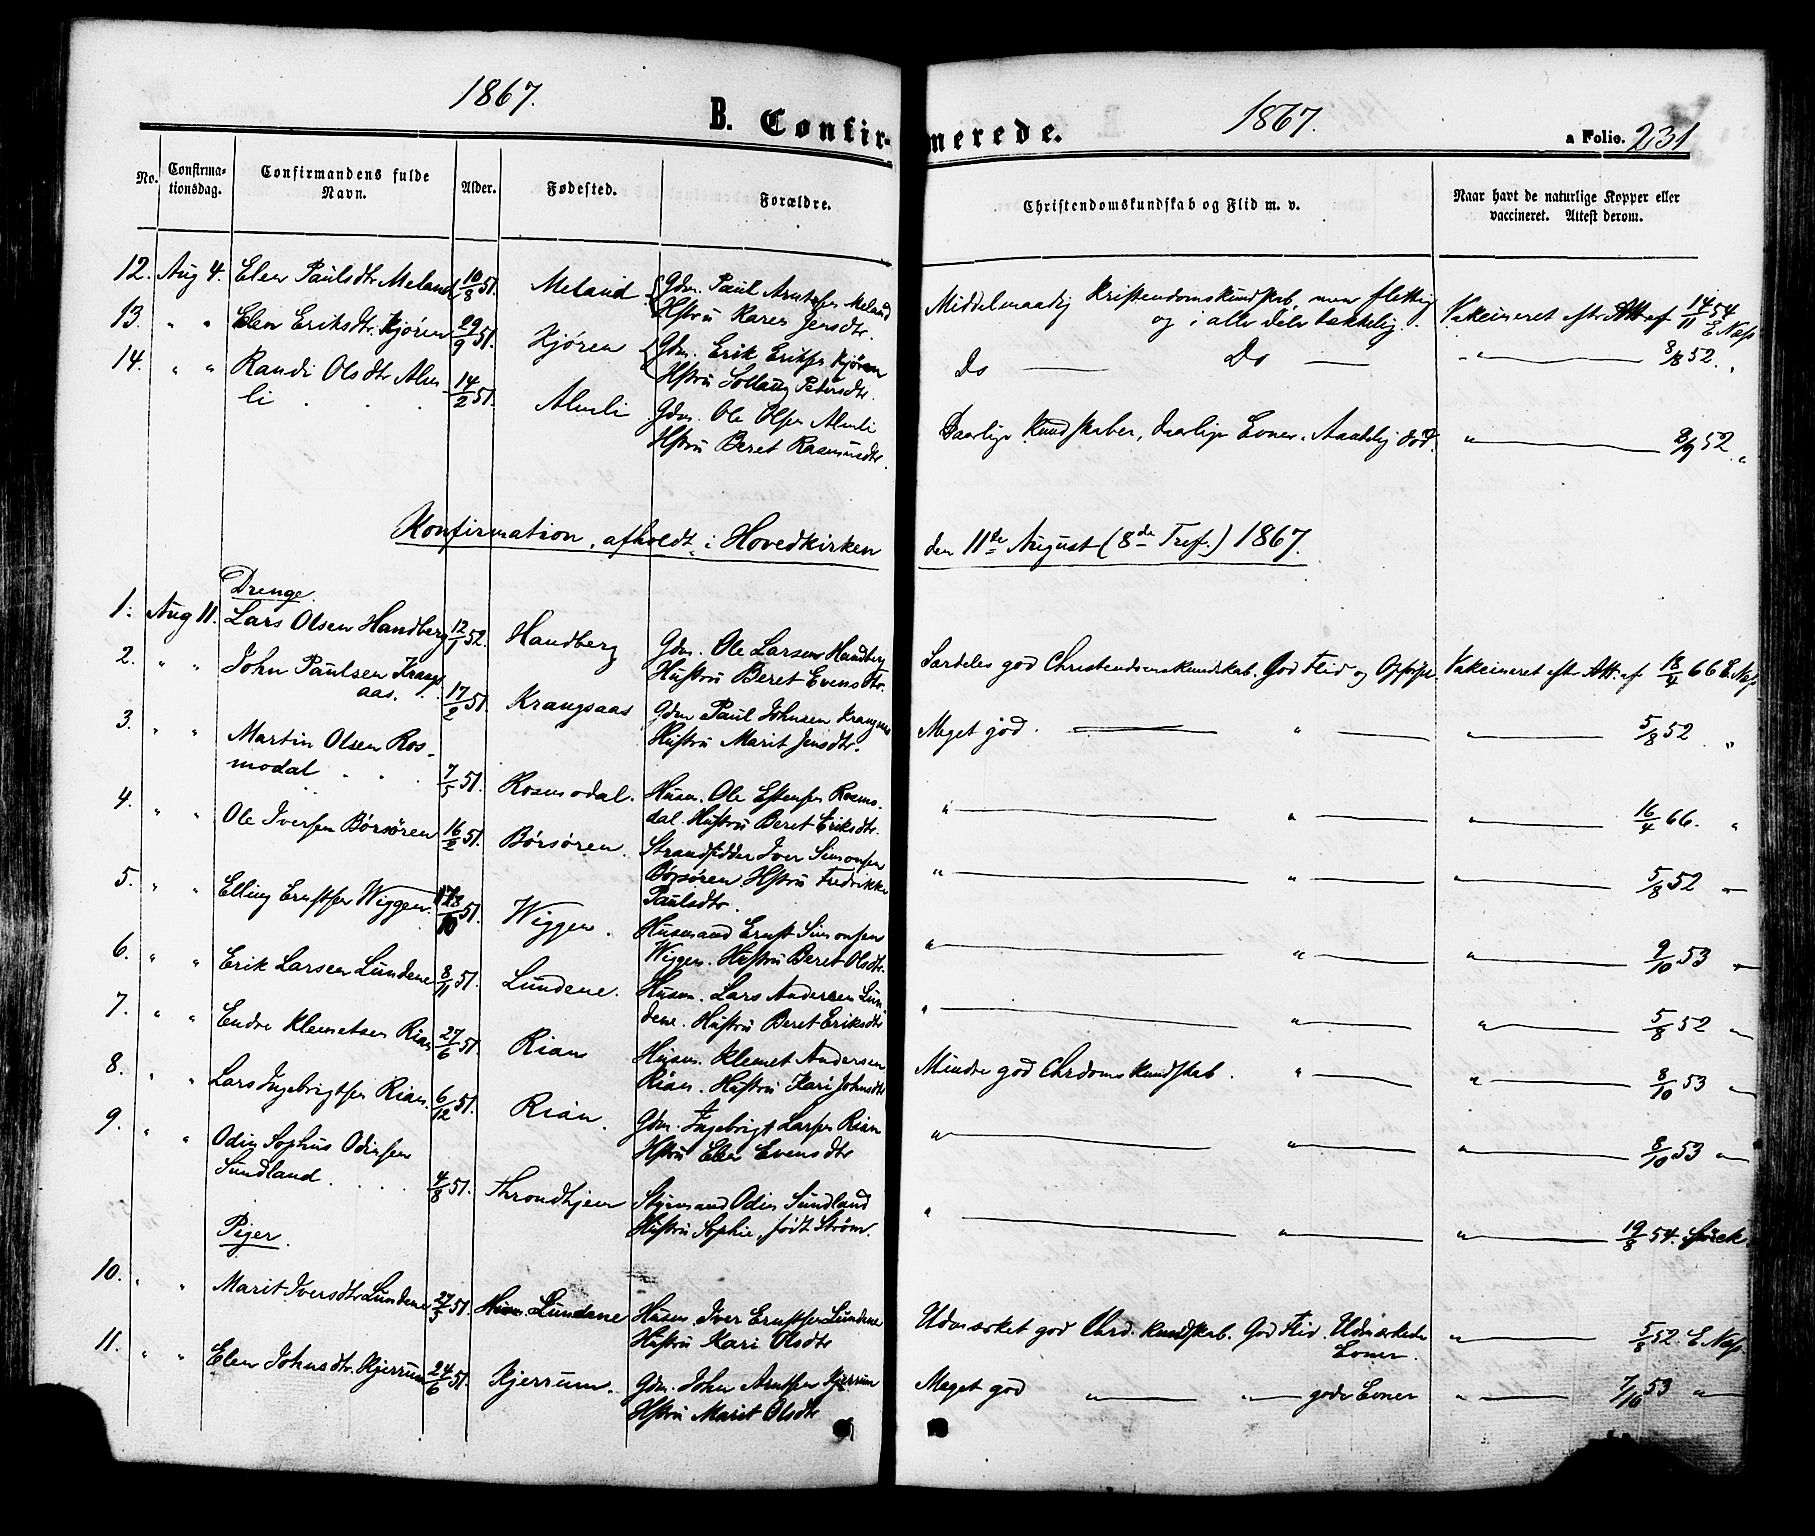 1867.
B. Confirmerede.
1867.
a Folio. 231
No.
Confirmationsdag.
Confirmandens fulde Navn.
Alder.
Fødested.
Forældre.
Christendomskundskab og Flid m. v.
Naar havt de naturlige Kopper eller vaccineret. Attest derom.
12. Aug 4. Elen Paulsdtr Meland 10/8 51. Meland Gdm. Paul Arntsen Meland
Hstru Karen Jensdtr.
Middelmaadig Kristendomskundskab, men flittig
og i alle dele takkelig.
Vakcineret eftr Att. af 14/11 54 E. Næss
13. " " Elen Eriksdtr. Kjøren 29/9 51. Kjøren Gdm. Erik Eriksen Kjøren
Hstru Sollaug Petersdtr.
Do — Do — " — 8/8 52. "
14. " " Randi Olsdtr Alm-
li 14/2 51. Almli Gdm. Ole Olsen Almli
Hstru Beret Rasmusdtr.
Daarlige Kundskaber, daarlige Evner. " — 8/9 52. "
Konfirmation, afholdt i Hovedkirken den 11te August (8de Tref.) 1867.
Drenge.
1. Aug 11. Lars Olsen Handberg 12/1 52. Handberg Gdm. Ole Larsen Handberg
Hustru Beret Evensdtr.
Særdeles god Christendomskundskab. God Flid og Opførsel. Vakcineret eftr Att. af 18/4 66 E. Næss
2. " " John Paulsen Krangs-
aas. 17/2 51. Krangsaas Gdm Paul Johnsen Krangsaas
Hustru Marit Jensdtr.
Meget god. — " — " — 5/8 52. "
3. " " Martin Olsen Ros-
modal 7/5 51. Rosmodal. Husm. Ole Estensen Rosmo-
dal. Hustru Beret Eriksdtr.
" — " — " — 16/4 66. "
4. " " Ole Iversen Børsøren 16/2 51. Børsøren. Strandsidder Iver Simonsen
Børsøren. Hstru Fredrikke
Paulsdtr.
" — " — " — 5/8 52 "
5. " " Elling Ernstsen Wiggen. 51. Wiggen. Husmand Ernst Simonsen
Wiggen. Hustru Beret Olsdtr.
" — " — " — 9/10 53 "
6. " " Erik Larsen Lundene 8/11 51. Lundene. Husm. Lars Andersen Lun-
dene. Hustru Beret Eriksdtr
" — " — " — 5/8 52 "
7. " " Endre Klemetsen Rian 27/6 51. Rian Husm. Klemet Andersen
Rian. Hustru Kari Johnsdtr
Mindre god Chrdomskundskab. " — " — 8/10 53 "
8. " " Lars Ingebrigtsen Rian. 6/12 51. Rian. Gdm. Ingebrigt Larsen Rian
Hstru Elen Evensdtr
" — " — " — 8/10 53 "
9. " " Odin Sophus Odinsen
Sundland 4/8 51. Throndhjem Styrmand Odin Sundland
Hustru Sophie, født Strøm.
" — " — " — 19/8 54.
Piger.
10. " " Marit Iversdtr Lundene 27/3 51. Lundene Husm. Iver Ernstsen Lundene
Hustru Kari Olsdtr
Udmærket god Chrd. kundskab. God Flid. Udmærkede
Evner.
" — 5/8 52. E. Næss
11. " " Elen Johnsdtr. Kjerrum 24/6 51. Kjerrum. Gdm. John Arntsen Kjerrum
Hstru Marit Olsdtr
Meget god " — " — gode Evner " — 7/10 53 "